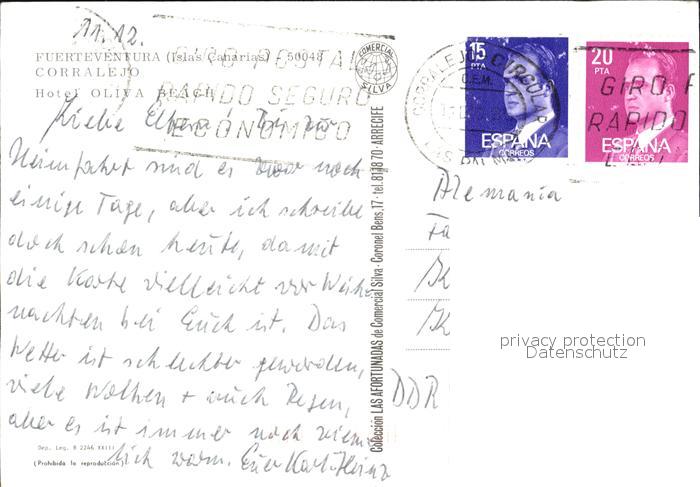 11.12.
FUERTEVENTURA (Islas Canarias) 50048
CORRALEJO
Hotel OLIVA BEACH
GIRO POSTAL
RAPIDO SEGURO
ECONOMICO
COMERCIAL
SILVA
Liebe Eltern! Bis zur
Heimfahrt sind es zwar noch
einige Tage, aber ich schreibe
doch schon heute, damit
die Karte vielleicht vor Weih-
nachten bei Euch ist. Das
Wetter ist schlechter geworden,
viele Wolken + auch Regen,
aber es ist immer noch ziem-
lich warm. Euer Karl-Heinz
Dep. Leg. B 2246 XXIII
(Prohibida la reproducción)
Colección LAS AFORTUNADAS de Comercial Silva - Coronel Bens, 17 - tel. 81 38 70 - ARRECIFE
CORRALEJO
15
PTA
ESPAÑA
CORREOS
20
PTA
ESPAÑA
CORREOS
GIRO P
RAPIDO
Alemania
DDR
privacy protection
Datenschutz